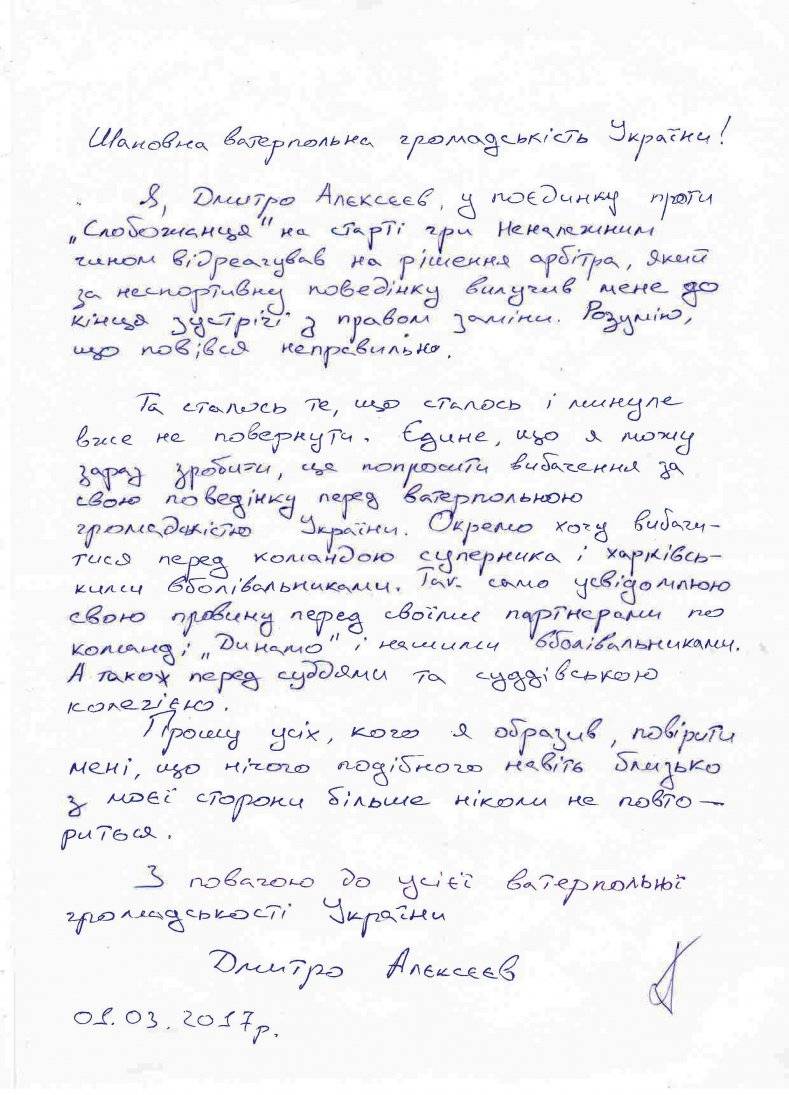 Шановна ватерпольна громадськість України!
Я, Дмитро Алєксєєв, у поєдинку проти
„Слобожанця" на старті гри неналежним
чином відреагував на рішення арбітра, який
за неспортивну поведінку вилучив мене до
кінця зустрічі з правом заміни. Розумію,
що повівся неправильно.
Та сталось те, що сталось і минуле
вже не повернути. Єдине, що я можу
зараз зробити, це попросити вибачення за
свою поведінку перед ватерпольною
громадкістю України. Окремо хочу вибачи-
тися перед командою суперника і харківсь-
кими вболівальниками. Так само усвідомлюю
свою провину перед своїми партнерами по
команді „Динамо" і нашими вболівальниками.
А також перед суддями та суддівською
колегією.
Прошу усіх, кого я образив, повірити
мені, що нічого подібного навіть близько
з моєї сторони більше ніколи не повто-
риться.
З повагою до усієї ватерпольної
громадськості України
Дмитро Алєксєєв
01.03.2017р.